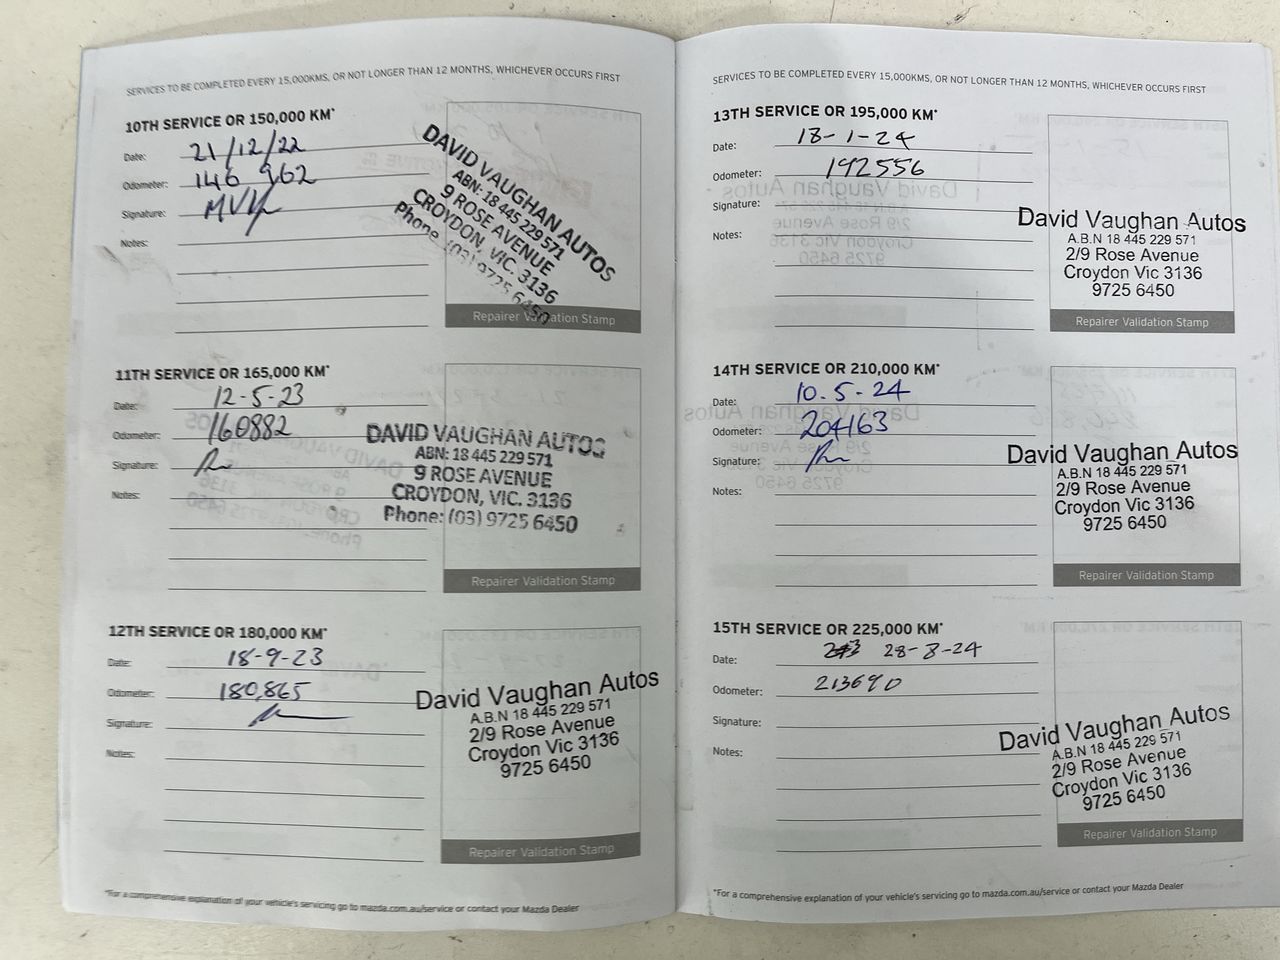 SERVICES TO BE COMPLETED EVERY 15,000KMS, OR NOT LONGER THAN 12 MONTHS, WHICHEVER OCCURS FIRST
10TH SERVICE OR 150,000 KM*
Date: 21/12/22
Odometer: 146 962
Signature:
Notes:
DAVID VAUGHAN AUTOS
ABN: 18 445 229 571
9 ROSE AVENUE
CROYDON, VIC. 3136
Phone (03) 9725 6450
Repairer Validation Stamp
11TH SERVICE OR 165,000 KM*
Date: 12-5-23
Odometer: 160882
Signature:
Notes:
DAVID VAUGHAN AUTOS
ABN: 18 445 229 571
9 ROSE AVENUE
CROYDON, VIC. 3136
Phone: (03) 9725 6450
Repairer Validation Stamp
12TH SERVICE OR 180,000 KM*
Date: 18-9-23
Odometer: 180,865
Signature:
Notes:
David Vaughan Autos
A.B.N 18 445 229 571
2/9 Rose Avenue
Croydon Vic 3136
9725 6450
Repairer Validation Stamp
*For a comprehensive explanation of your vehicle's servicing go to mazda.com.au/service or contact your Mazda Dealer
SERVICES TO BE COMPLETED EVERY 15,000KMS, OR NOT LONGER THAN 12 MONTHS, WHICHEVER OCCURS FIRST
13TH SERVICE OR 195,000 KM*
Date: 18-1-24
Odometer: 192556
Signature:
Notes:
David Vaughan Autos
A.B.N 18 445 229 571
2/9 Rose Avenue
Croydon Vic 3136
9725 6450
Repairer Validation Stamp
14TH SERVICE OR 210,000 KM*
Date: 10.5-24
Odometer: 204163
Signature:
Notes:
David Vaughan Autos
A.B.N 18 445 229 571
2/9 Rose Avenue
Croydon Vic 3136
9725 6450
Repairer Validation Stamp
15TH SERVICE OR 225,000 KM*
Date: 28-8-24
Odometer: 213690
Signature:
Notes:
David Vaughan Autos
A.B.N 18 445 229 571
2/9 Rose Avenue
Croydon Vic 3136
9725 6450
Repairer Validation Stamp
*For a comprehensive explanation of your vehicle's servicing go to mazda.com.au/service or contact your Mazda Dealer